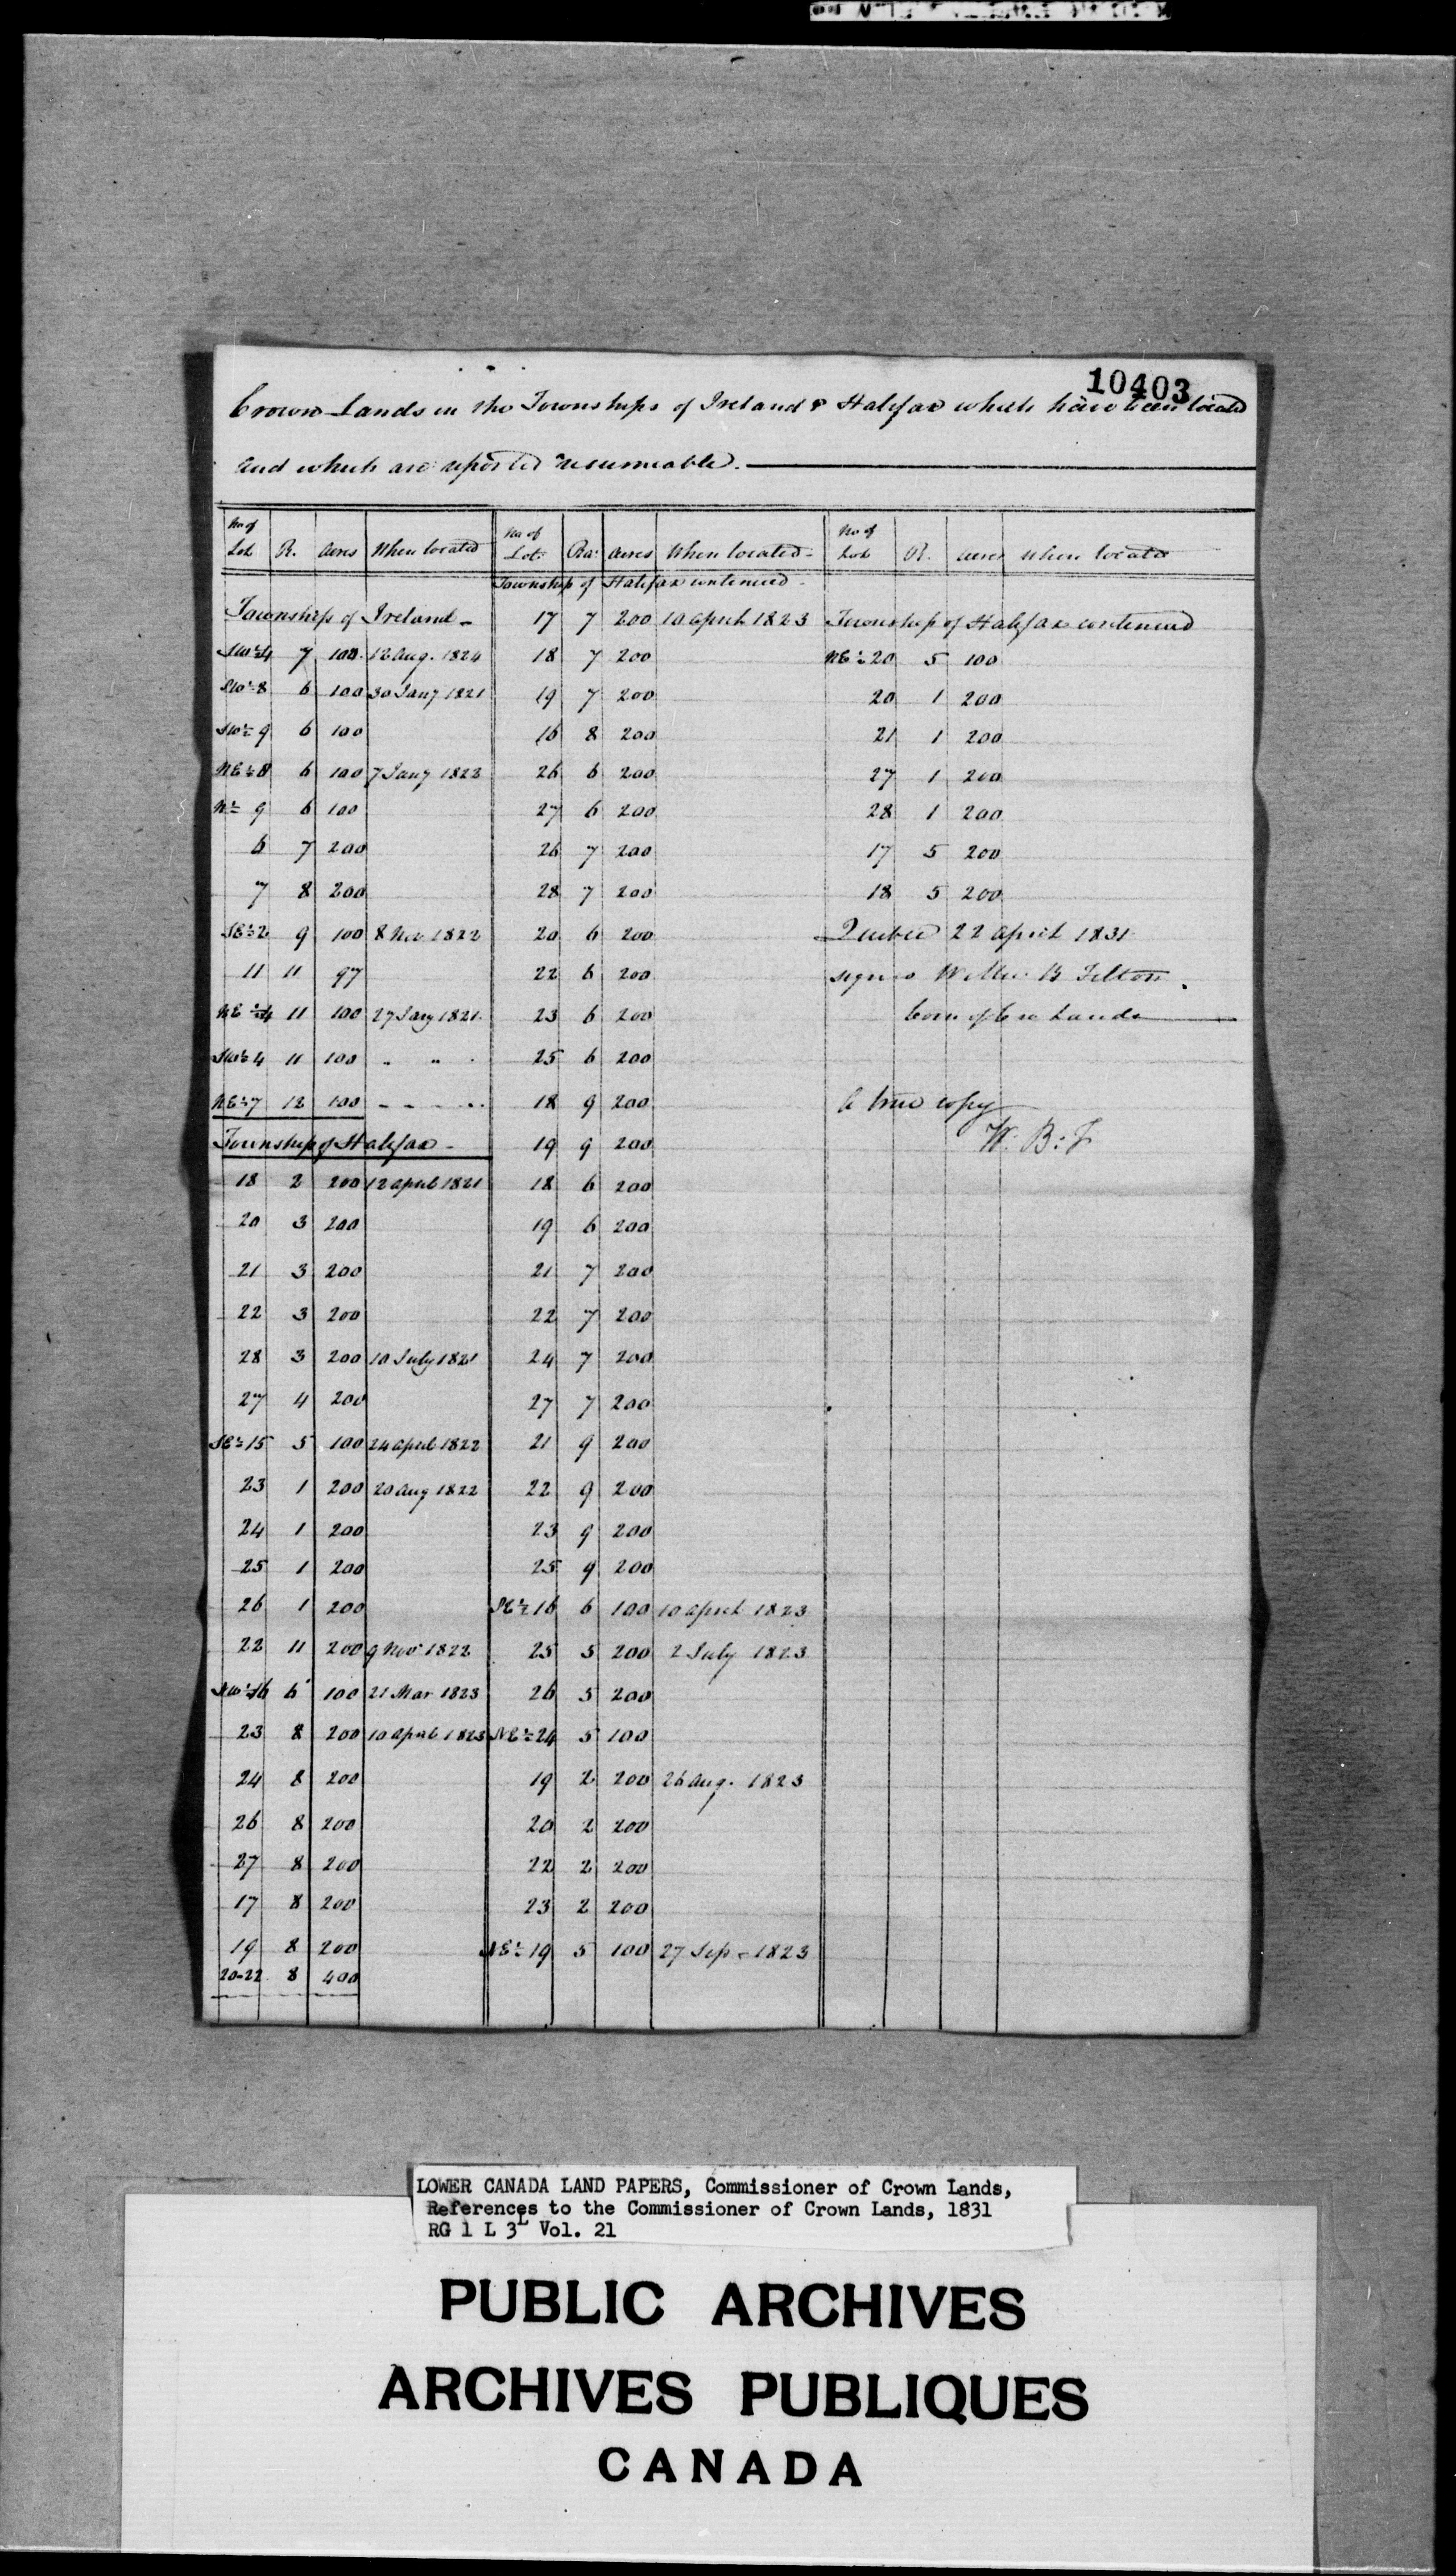 10403
Crown Lands in the Townships of Ireland & Halifax which have been located
and which are reported resumeable.
No of Lot R. Acres When located
Township of Ireland
SW½ 4 7 100 12 Aug. 1824
SW½ 8 6 100 30 Jany 1821
SW½ 9 6 100
NE½ 8 6 100 7 Jany 1823
N½ 9 6 100
6 7 200
7 8 200
SE½ 2 9 100 8 Nov 1822
11 11 97
NE½ 4 11 100 27 Jany 1821
SW½ 4 11 100 " "
NE½ 7 12 100 - - - -
Township of Halifax
18 2 200 12 April 1821
20 3 200
21 3 200
22 3 200
28 3 200 10 July 1821
27 4 200
SE½ 15 5 100 24 April 1822
23 1 200 20 Aug 1822
24 1 200
25 1 200
26 1 200
22 11 200 9 Nov 1822
SW½ 16 6 100 21 Mar 1823
23 8 200 10 April 1823
24 8 200
26 8 200
27 8 200
17 8 200
19 8 200
20-22 8 400
No of Lot Ra: Acres When located
Township of Halifax continued
17 7 200 10 April 1823
18 7 200
19 7 200
16 8 200
26 6 200
27 6 200
26 7 200
28 7 200
20 6 200
22 6 200
23 6 200
25 6 200
18 9 200
19 9 200
18 6 200
19 6 200
21 7 200
22 7 200
24 7 200
27 7 200
21 9 200
22 9 200
23 9 200
25 9 200
SE½ 16 6 100 10 April 1823
25 5 200 2 July 1823
26 5 200
NE½ 24 5 100
19 2 200 26 Aug. 1823
20 2 200
22 2 200
23 2 200
NE½ 19 5 100 27 Sep 1823
No of Lot R. Acres When located
Township of Halifax continued
NE½ 20 5 100
20 1 200
21 1 200
27 1 200
28 1 200
17 5 200
18 5 200
Quebec 22 April 1831
signed Willm B Felton
Com of Cro Lands
A true copy
W: B: F
LOWER CANADA LAND PAPERS, Commissioner of Crown Lands,
References to the Commissioner of Crown Lands, 1831
RG 1 L 3L Vol. 21
PUBLIC ARCHIVES
ARCHIVES PUBLIQUES
CANADA